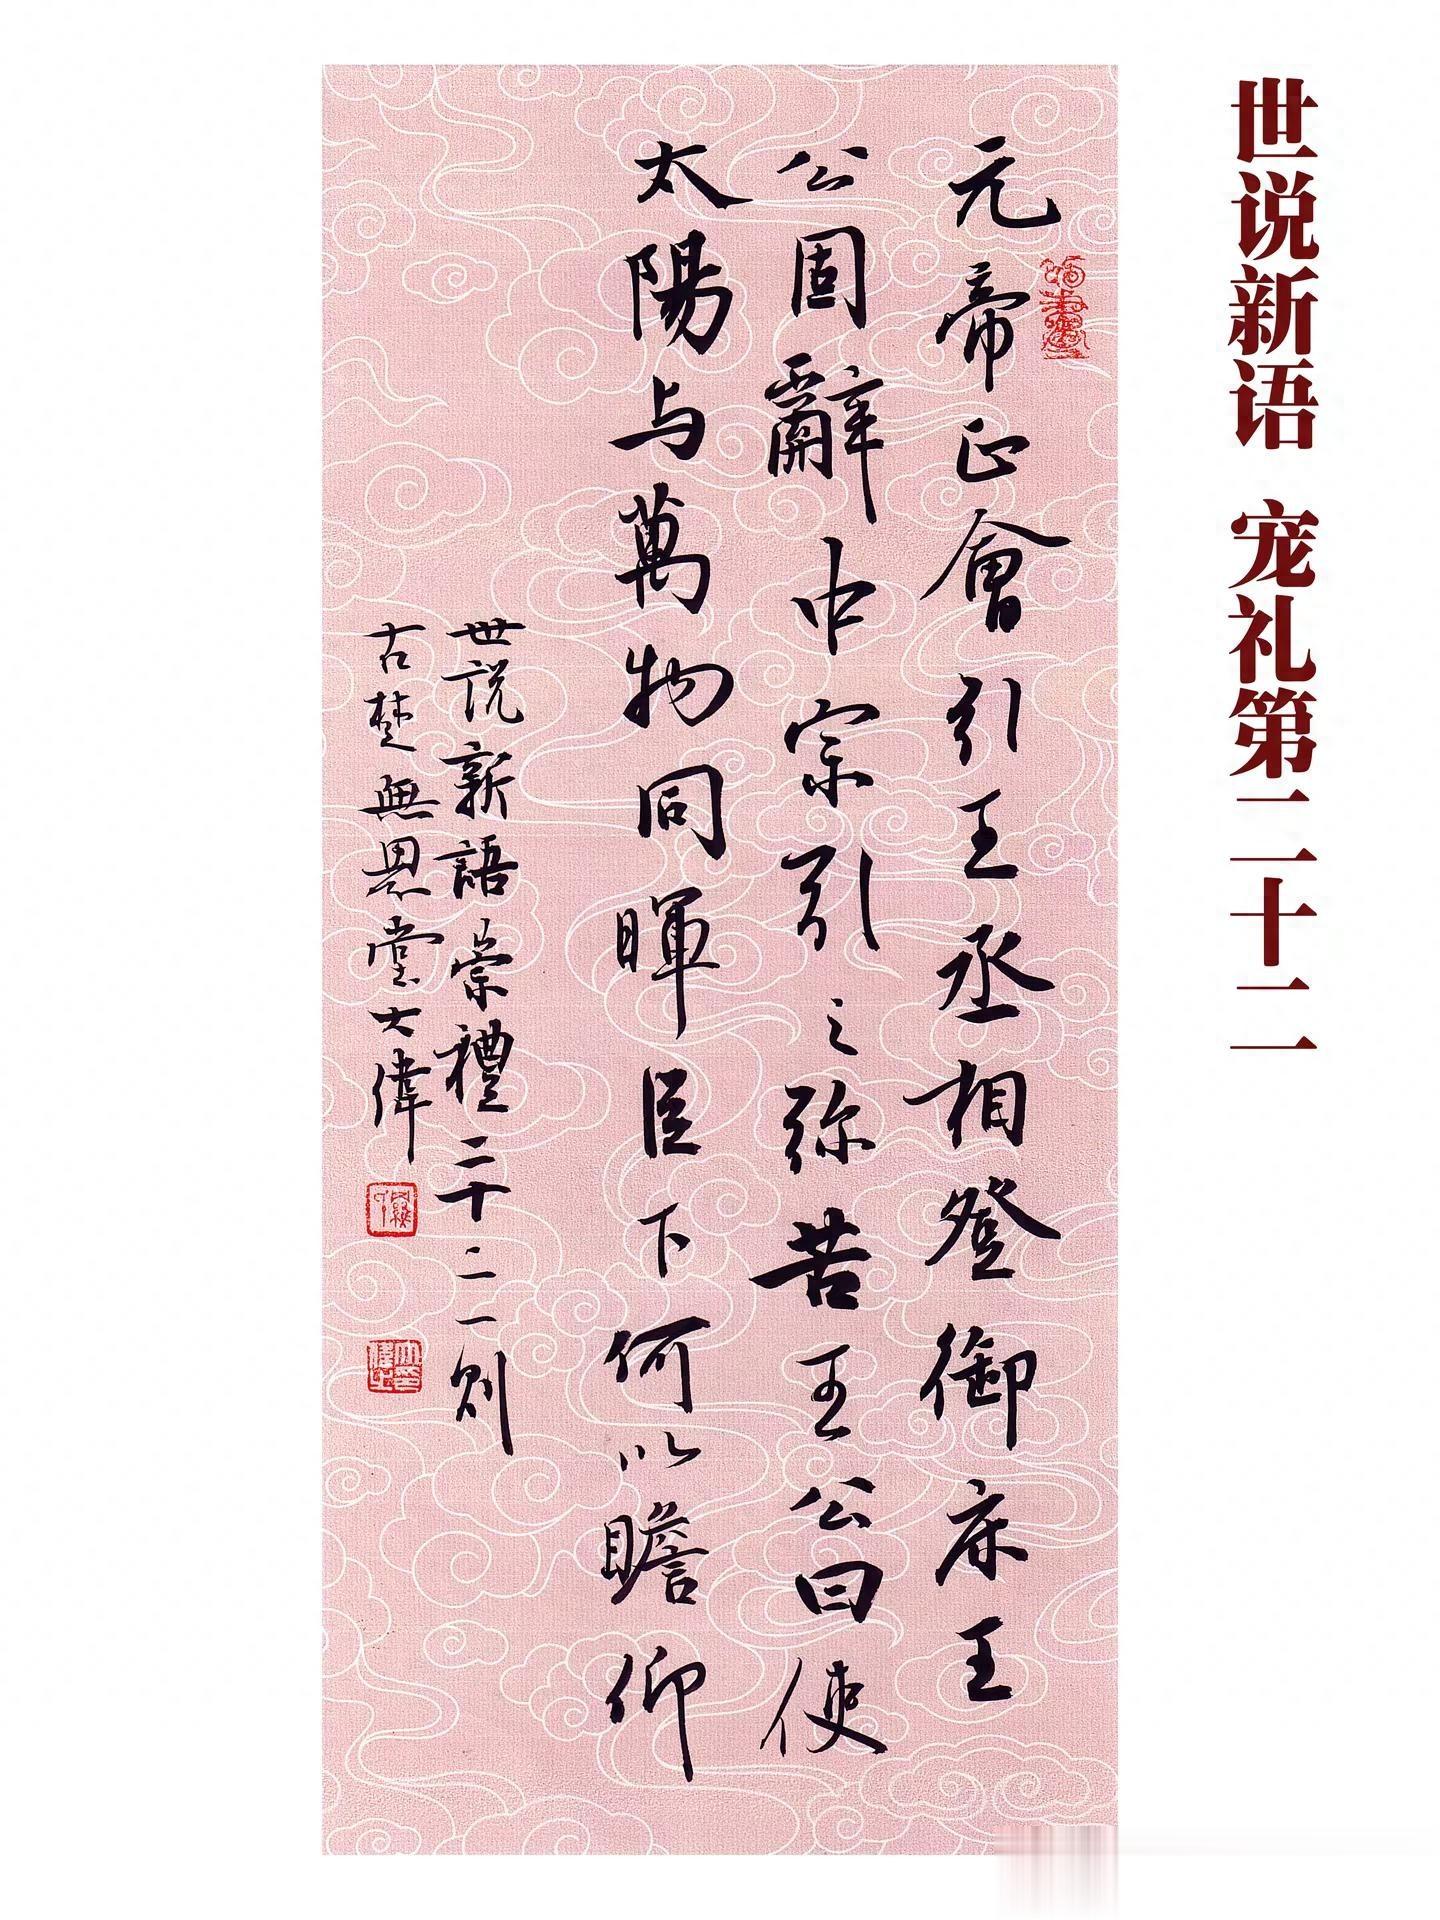 世说新语 宠礼第二十二
元帝正會引王丞相登御床王
公固辭中宗引之弥苦王公曰使
太陽与萬物同暉臣下何以瞻仰
世説新語崇禮二十二一則
古楚無思堂大偉